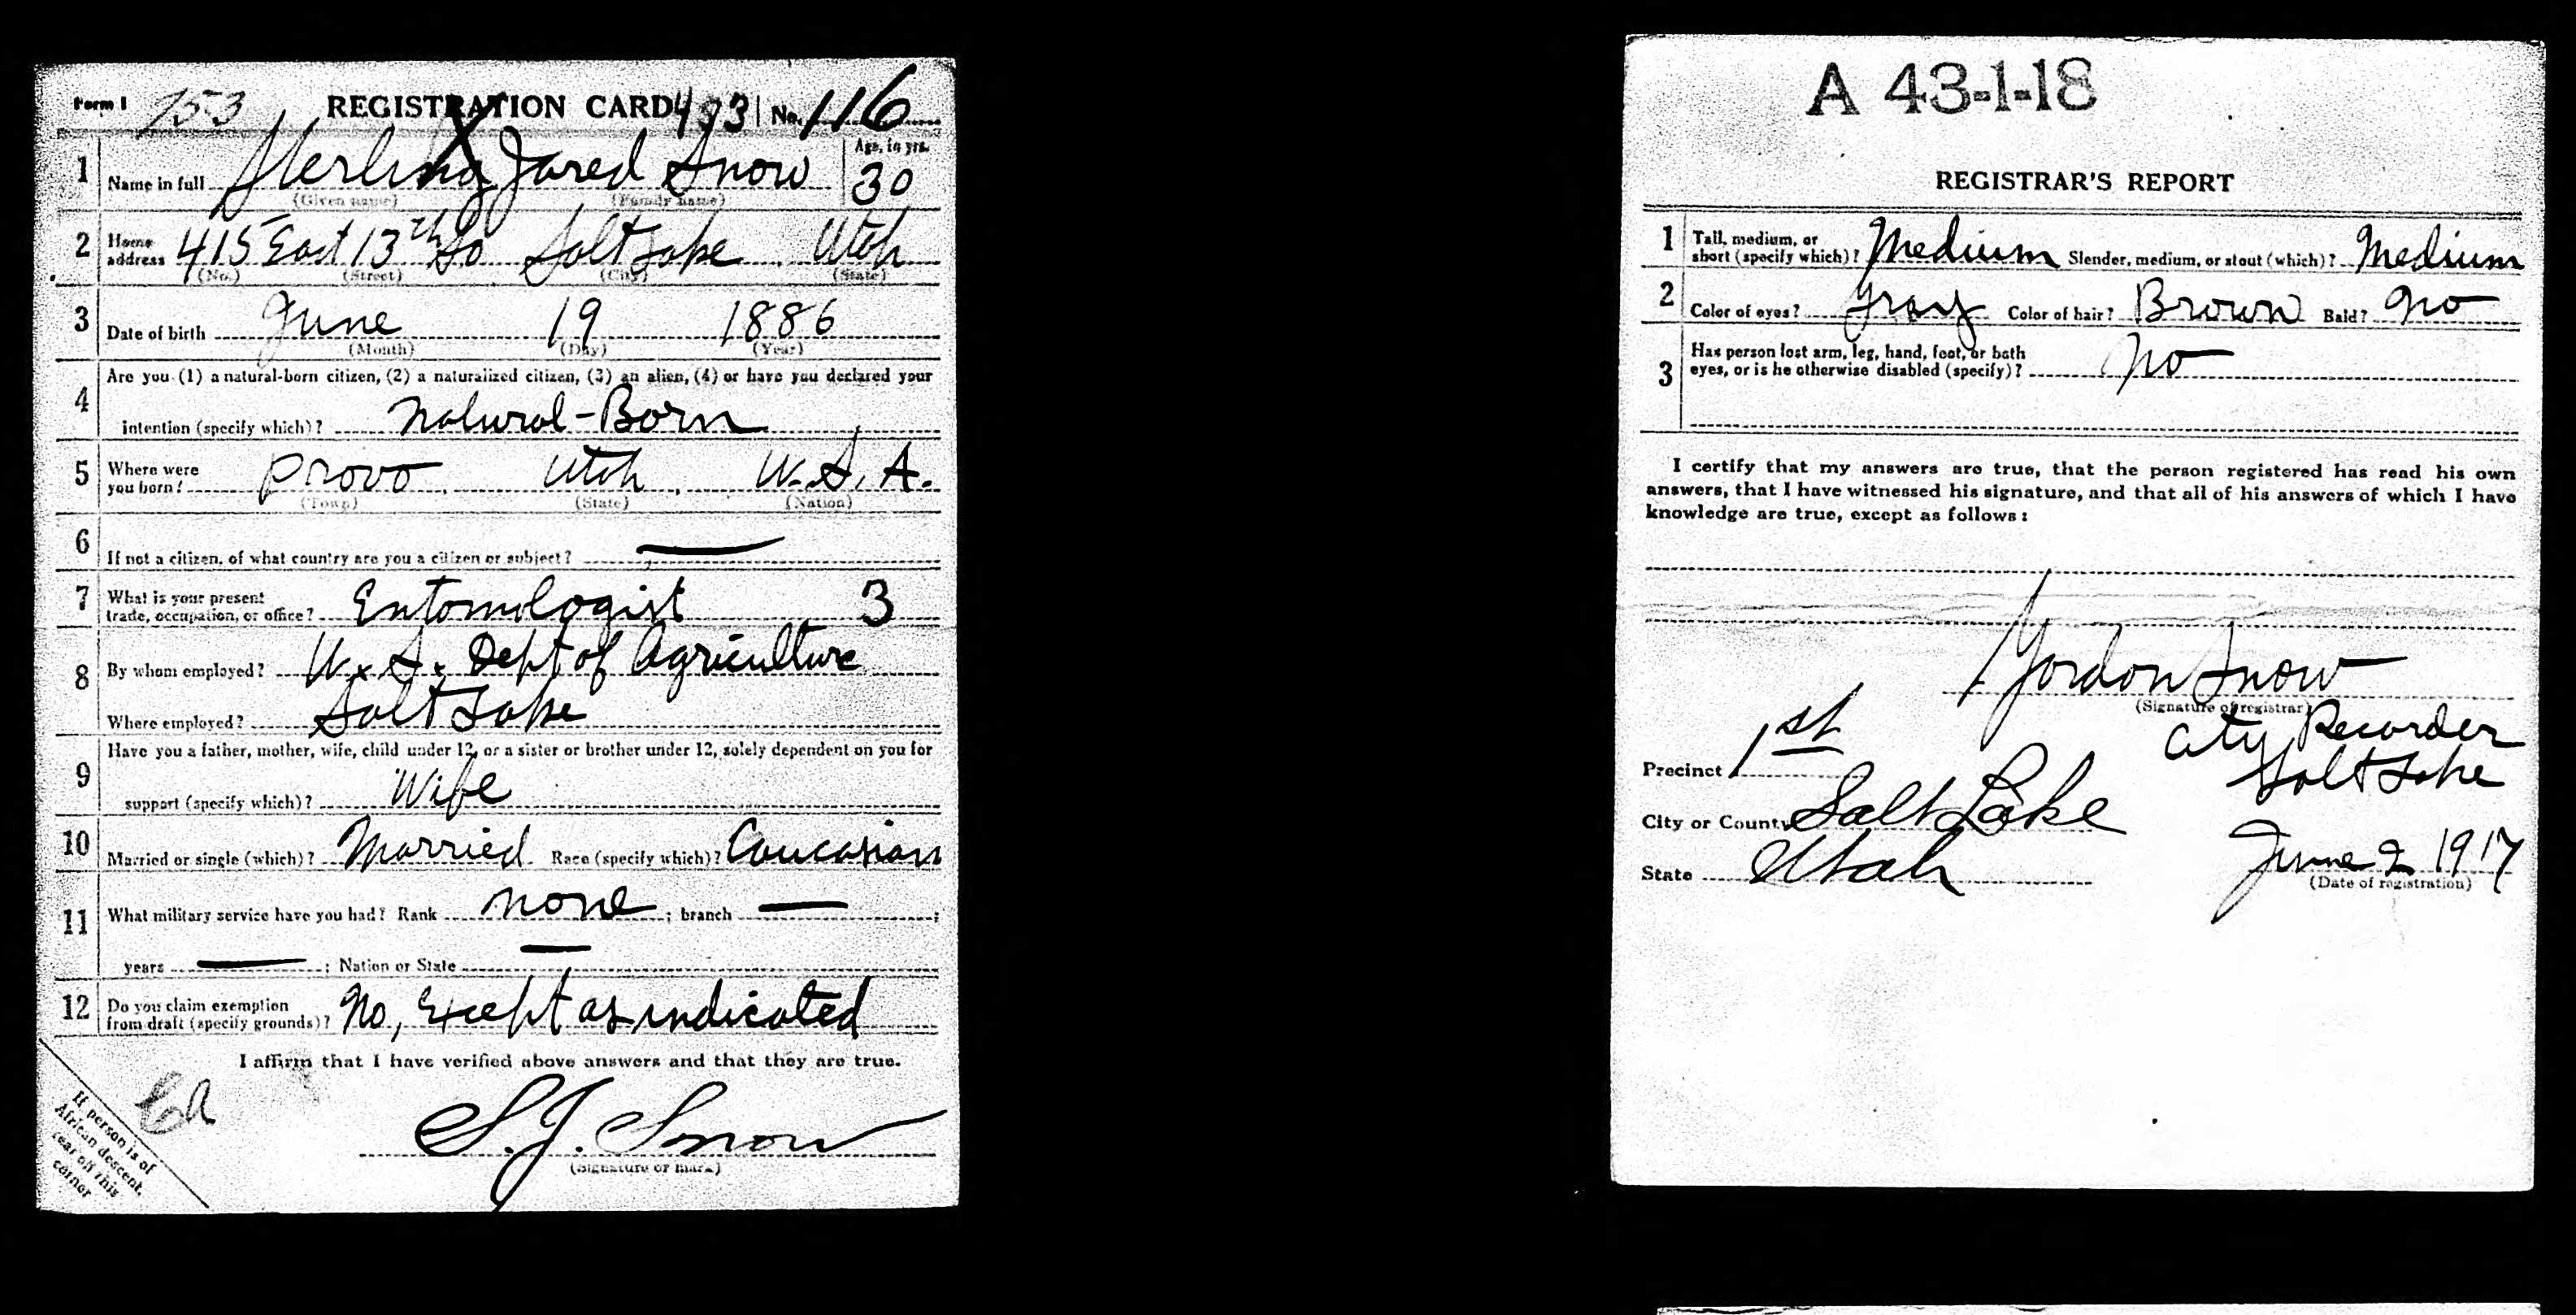 Form 1 753 REGISTRATION CARD 493 No. 116
1 Name in full Sterling Jared Snow Age, in yrs. 30
(Given name) (Family name)
2 Home address 415 East 13th So Salt Lake Utah
(No.) (Street) (City) (State)
3 Date of birth June 19 1886
(Month) (Day) (Year)
4 Are you (1) a natural-born citizen, (2) a naturalized citizen, (3) an alien, (4) or have you declared your
intention (specify which)? Natural-Born
5 Where were you born? Provo Utah U.S.A.
(Town) (State) (Nation)
6 If not a citizen, of what country are you a citizen or subject? —
7 What is your present trade, occupation, or office? Entomologist 3
8 By whom employed? U.S. Dept of Agriculture
Where employed? Salt Lake
9 Have you a father, mother, wife, child under 12, or a sister or brother under 12, solely dependent on you for
support (specify which)? Wife
10 Married or single (which)? Married Race (specify which)? Caucasian
11 What military service have you had? Rank none ; branch — ;
years — ; Nation or State —
12 Do you claim exemption from draft (specify grounds)? No, Except as indicated
I affirm that I have verified above answers and that they are true.
S.J. Snow
(Signature or mark)
If person is of
African descent,
tear off this
corner
A 43-1-18
REGISTRAR'S REPORT
1 Tall, medium, or short (specify which)? Medium Slender, medium, or stout (which)? Medium
2 Color of eyes? Gray Color of hair? Brown Bald? No
3 Has person lost arm, leg, hand, foot, or both
eyes, or is he otherwise disabled (specify)? No
I certify that my answers are true, that the person registered has read his own
answers, that I have witnessed his signature, and that all of his answers of which I have
knowledge are true, except as follows:
Gordon Snow
(Signature of registrar)
City Recorder
Precinct 1st
Salt Lake
City or County Salt Lake
State Utah June 2 1917
(Date of registration)